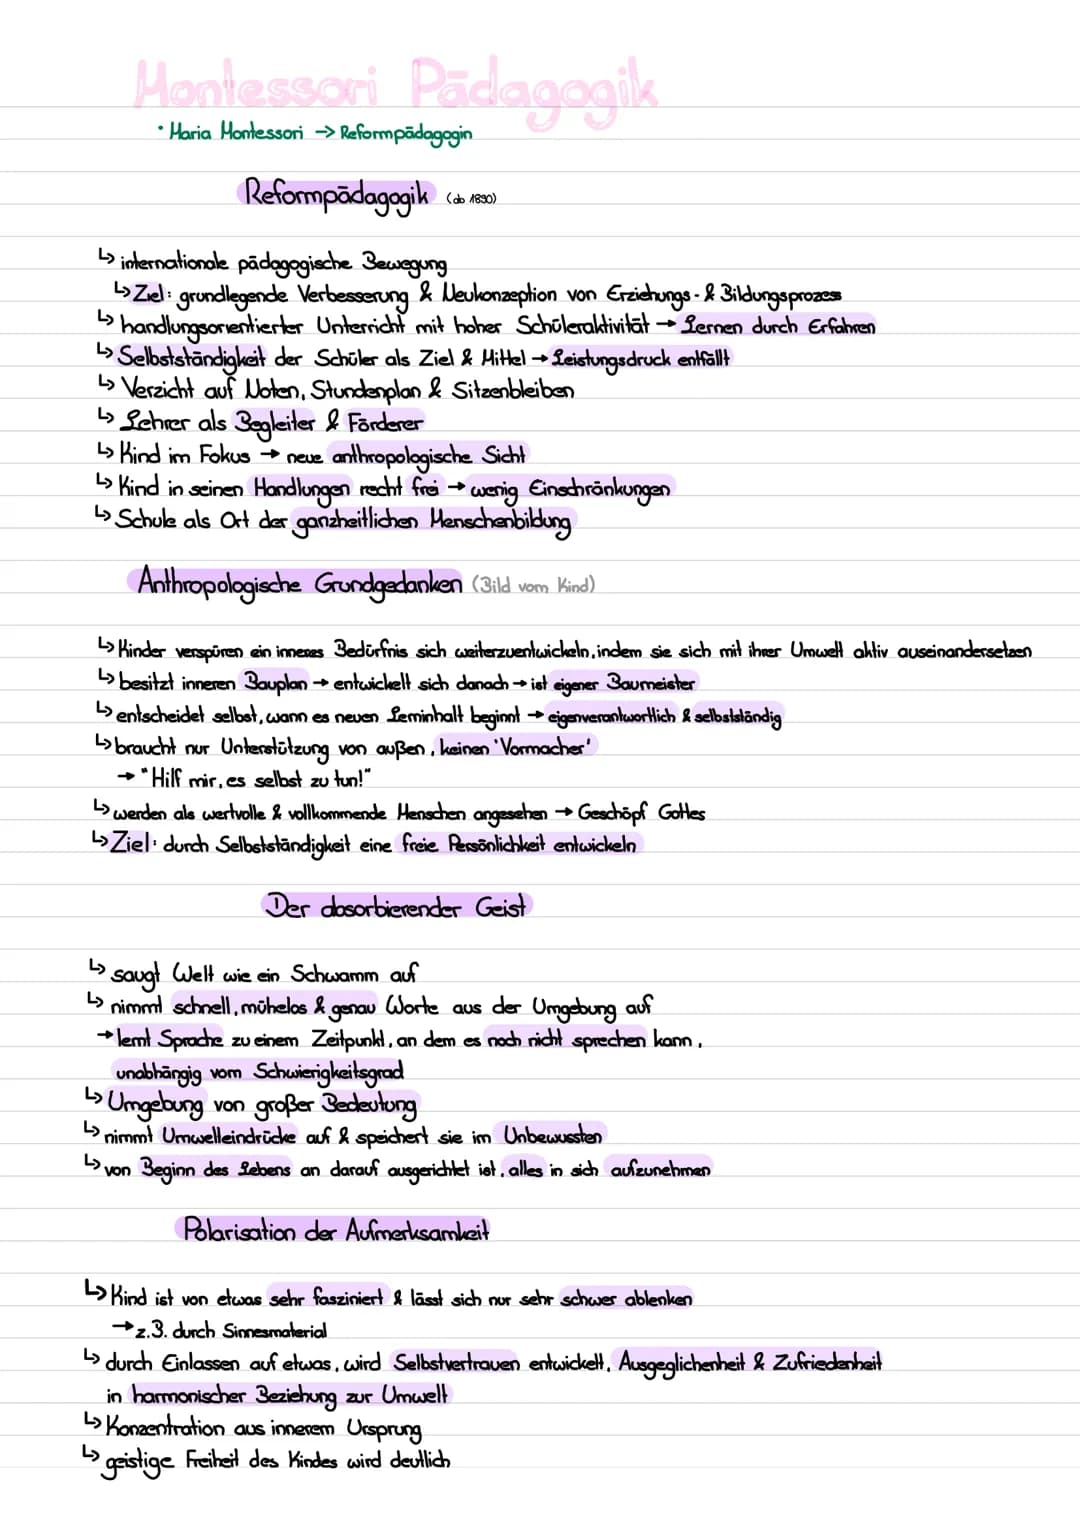 Montessori Pädagogik
• Maria Montessori → Reformpädagogin
Reformpädagogik (ab 1890)
↳ internationale pädagogische Bewegung
↳ Ziel: grundlegende Verbesserung & Neukonzeption von Erziehungs- & Bildungsprozess
↳ handlungsorientierter Unterricht mit hoher Schüleraktivität → Lernen durch Erfahren
↳ Selbstständigkeit der Schüler als Ziel & Mittel → Leistungsdruck entfällt
↳ Verzicht auf Noten, Stundenplan & Sitzenbleiben
↳ Lehrer als Begleiter & Förderer
↳ Kind im Fokus → neue anthropologische Sicht
↳ Kind in seinen Handlungen recht frei → wenig Einschränkungen
↳ Schule als Ort der ganzheitlichen Menschenbildung
Anthropologische Grundgedanken (Bild vom Kind)
↳ Kinder verspüren ein inneres Bedürfnis sich weiterzuentwickeln, indem sie sich mit ihrer Umwelt aktiv auseinandersetzen
↳ besitzt inneren Bauplan → entwickelt sich danach → ist eigener Baumeister
↳ entscheidet selbst, wann es neuen Lerninhalt beginnt → eigenverantwortlich & selbstständig
↳ braucht nur Unterstützung von außen, keinen 'Vormacher'
→ "Hilf mir, es selbst zu tun!"
↳ werden als wertvolle & vollkommende Menschen angesehen → Geschöpf Gottes
↳ Ziel: durch Selbstständigkeit eine freie Persönlichkeit entwickeln
Der absorbierender Geist
↳ saugt Welt wie ein Schwamm auf
↳ nimmt schnell, mühelos & genau Worte aus der Umgebung auf
→ lernt Sprache zu einem Zeitpunkt, an dem es noch nicht sprechen kann,
unabhängig vom Schwierigkeitsgrad
↳ Umgebung von großer Bedeutung
↳ nimmt Umwelteindrücke auf & speichert sie im Unbewussten
↳ von Beginn des Lebens an darauf ausgerichtet ist, alles in sich aufzunehmen
Polarisation der Aufmerksamkeit
↳ Kind ist von etwas sehr fasziniert & lässt sich nur sehr schwer ablenken
→ z.B. durch Sinnesmaterial
↳ durch Einlassen auf etwas, wird Selbstvertrauen entwickelt, Ausgeglichenheit & Zufriedenheit
in harmonischer Beziehung zur Umwelt
↳ Konzentration aus innerem Ursprung
↳ geistige Freiheit des Kindes wird deutlich